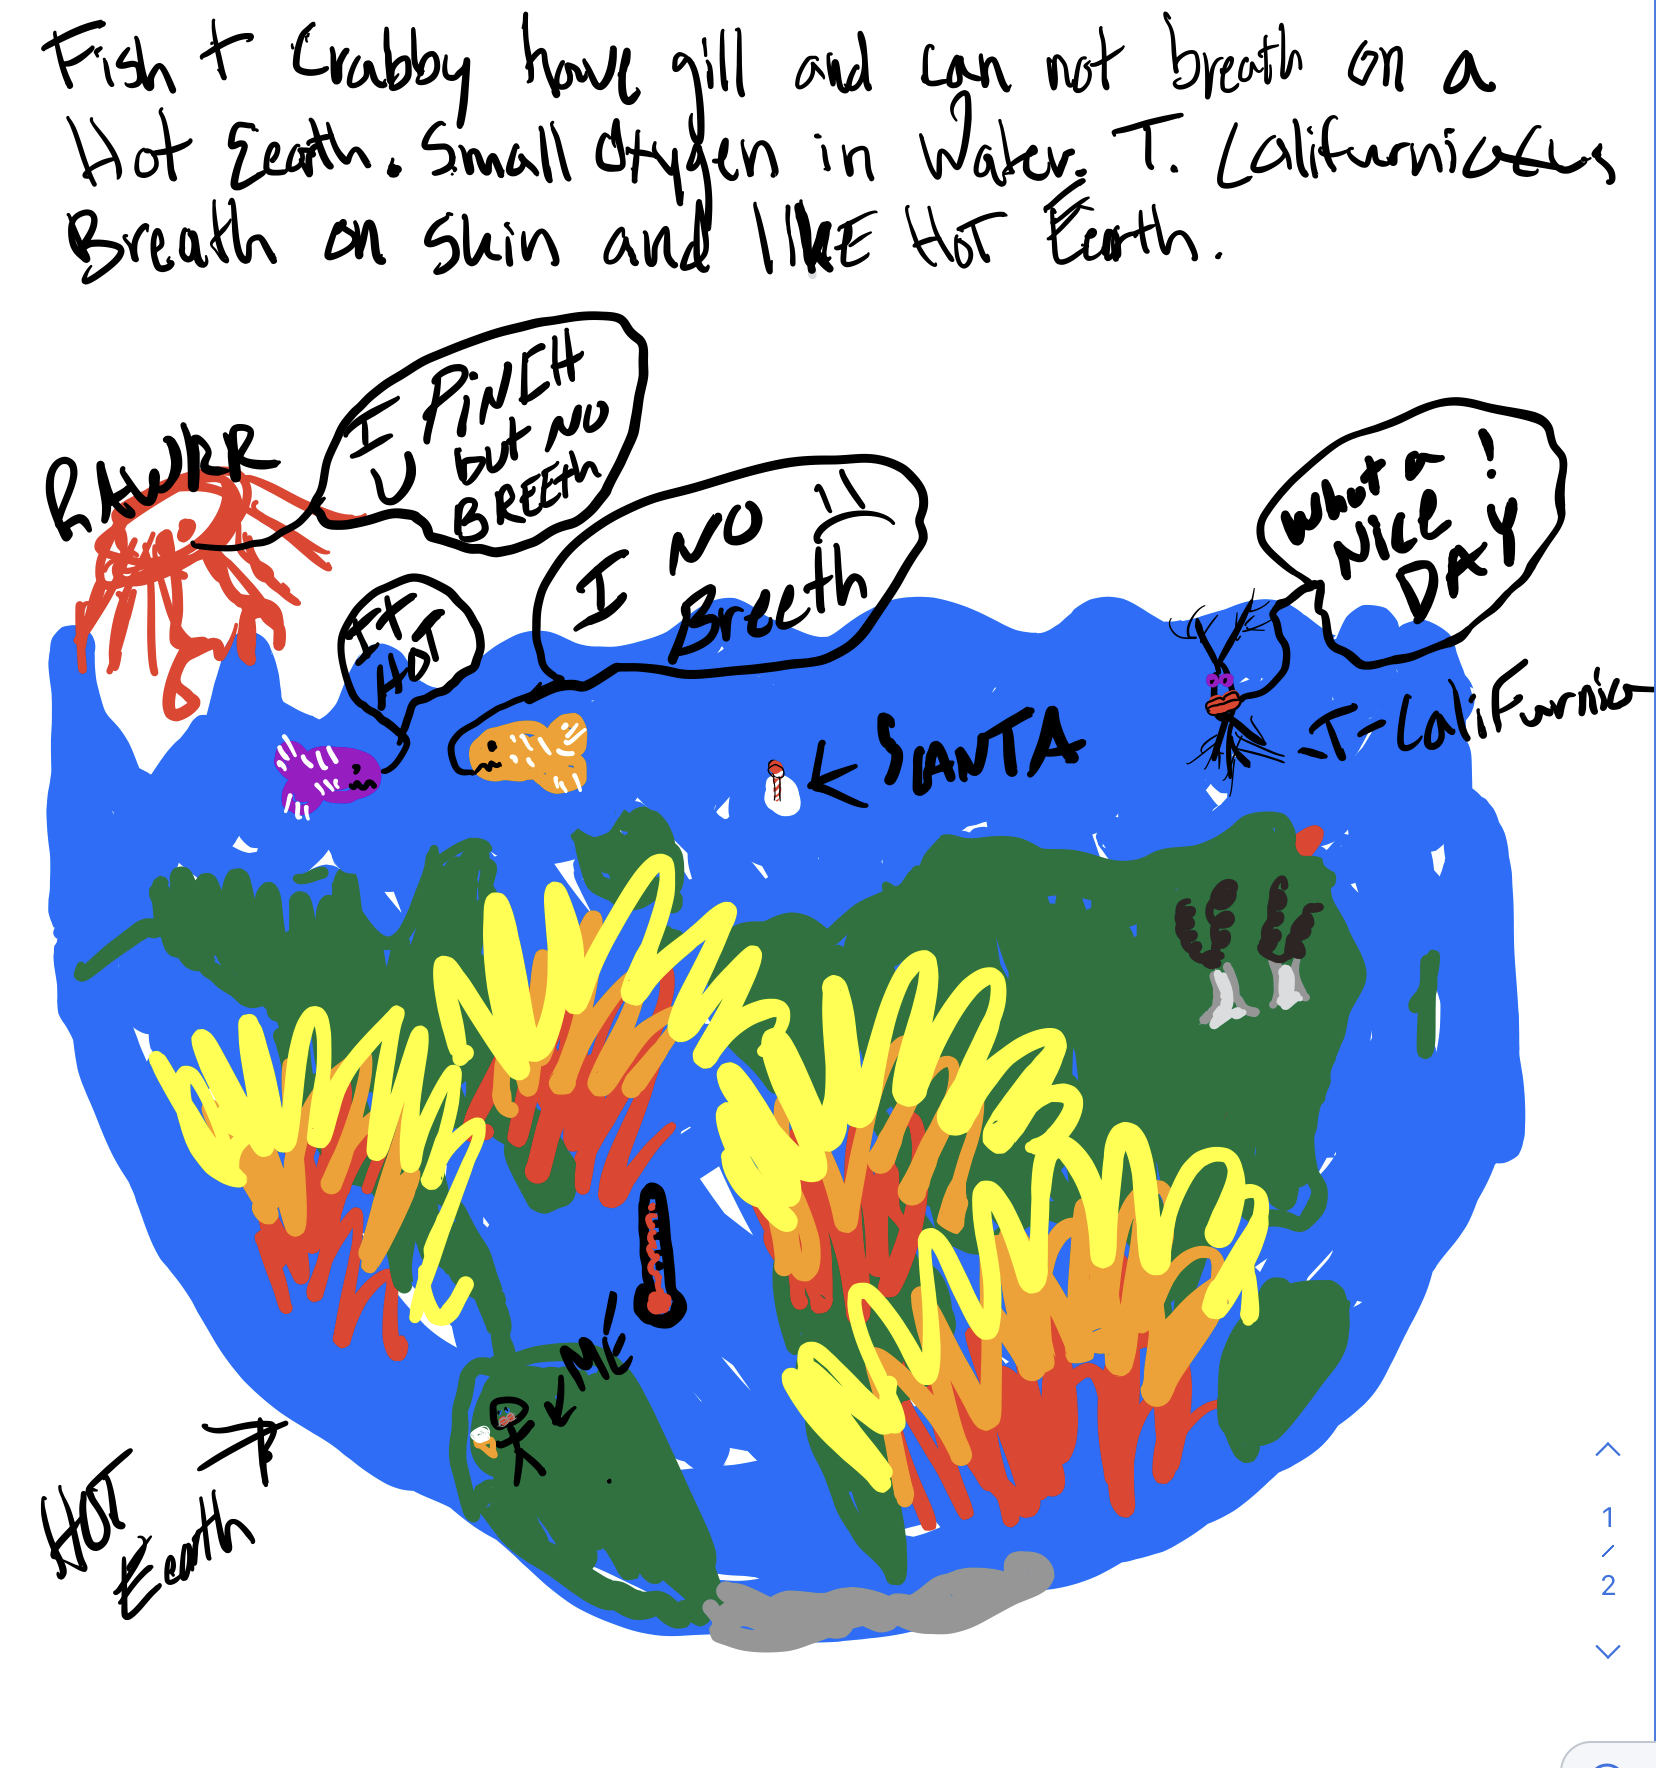 Fish + Crabby have gill and can not breath on a
Hot Eearth. Small Oxygen in Water. T. Califurnicus
Breath on Skin and lIKE HoT Eearth.
RAWRR
I PiNCH
U but NO
BREEth
IT
HOT
I NO
Breeth
What a !
NICE
DAY
SANTA
T-CaliFurnica
ME
HOT
Eearth
1
/
2